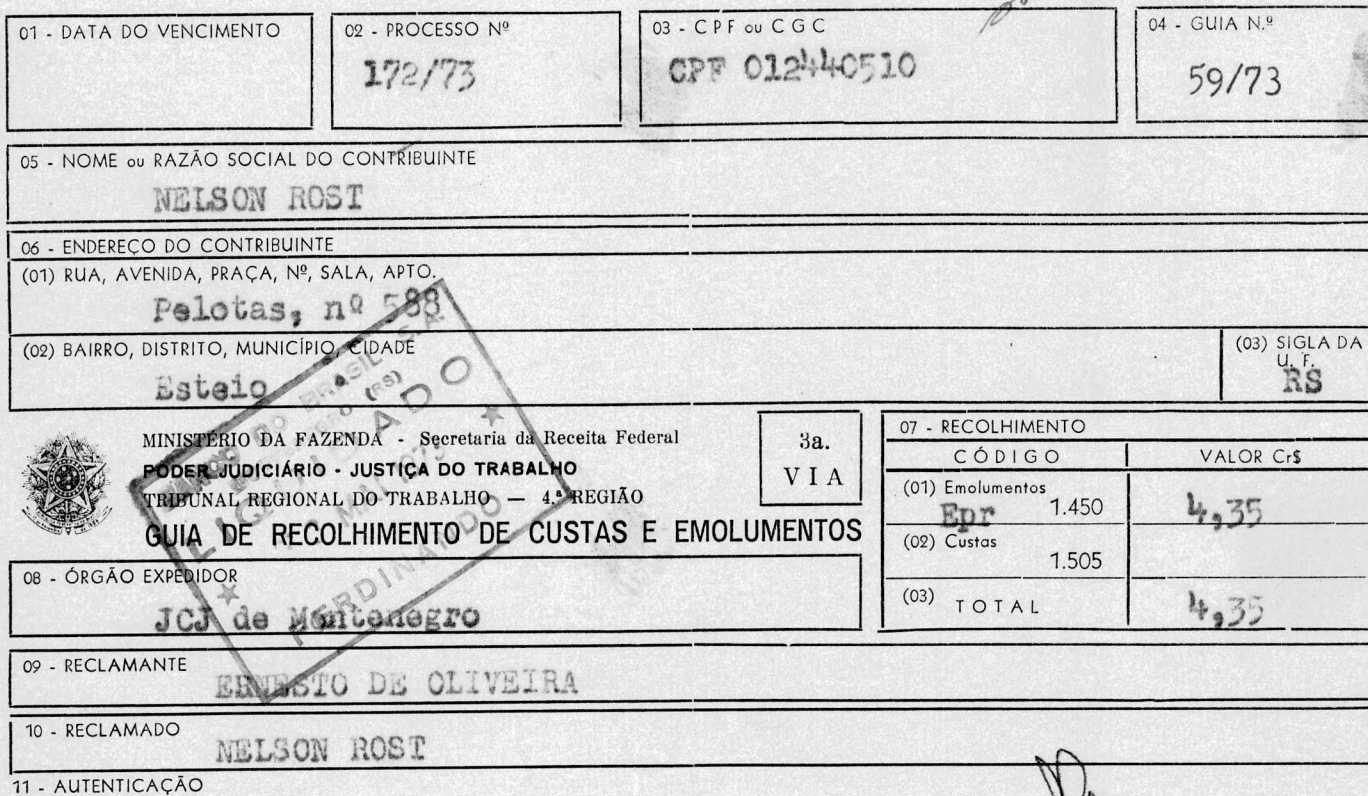 01 - DATA DO VENCIMENTO
02 - PROCESSO Nº
172/73
03 - C P F ou C G C
CPF 012440510
04 - GUIA N.º
59/73
05 - NOME ou RAZÃO SOCIAL DO CONTRIBUINTE
NELSON ROST
06 - ENDEREÇO DO CONTRIBUINTE
(01) RUA, AVENIDA, PRAÇA, Nº, SALA, APTO.
Pelotas, nº 588
(02) BAIRRO, DISTRITO, MUNICÍPIO, CIDADE
Esteio
(03) SIGLA DA
U. F.
RS
MINISTÉRIO DA FAZENDA - Secretaria da Receita Federal
PODER JUDICIÁRIO - JUSTIÇA DO TRABALHO
TRIBUNAL REGIONAL DO TRABALHO — 4.ª REGIÃO
GUIA DE RECOLHIMENTO DE CUSTAS E EMOLUMENTOS
3a.
VIA
07 - RECOLHIMENTO
CÓDIGO VALOR Cr$
(01) Emolumentos
Epr 1.450 4,35
(02) Custas
1.505
(03) TOTAL 4,35
08 - ÓRGÃO EXPEDIDOR
JCJ de Montenegro
BRASIL S.A.
(RS)
FERDINANDO
09 - RECLAMANTE
ERNESTO DE OLIVEIRA
10 - RECLAMADO
NELSON ROST
11 - AUTENTICAÇÃO